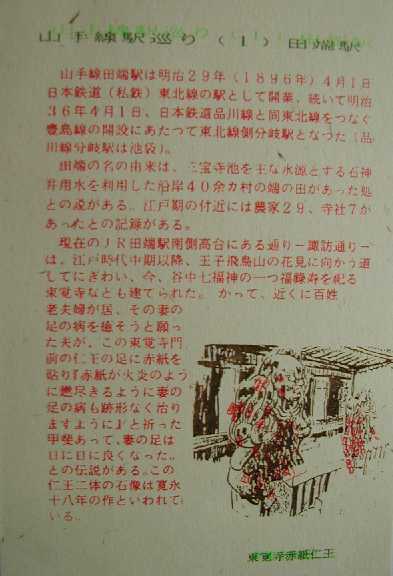 山手線駅巡り(1)田端駅
山手線田端駅は明治29年(1896年)4月1日
日本鉄道(私鉄)東北線の駅として開業、続いて明治
36年4月1日、日本鉄道品川線と同東北線をつなぐ
豊島線の開設にあたって東北線側分岐駅となつた(品
川線分岐駅は池袋)。
田端の名の由来は、三宝寺池を主な水源とする石神
井用水を利用した沿岸40余カ村の端の田があった処
との説がある。江戸期の付近には農家29、寺社7が
あったとの記録がある。
現在のJR田端駅南側高台にある通りー諏訪通りー
は、江戸時代中期以降、王子飛鳥山の花見に向かう道
してにぎわい、今、谷中七福神の一つ福緑寿を祀る
東覚寺なども建てられた。 かって、近くに百姓
老夫婦が居、その妻の
足の病を癒そうと願っ
た夫が、この東覚寺門
前の仁王の足に赤紙を
貼り『赤紙が火炎のよう
に燃尽きるように妻の
足の病も跡形なく治り
ますように』と祈った
甲斐あって、妻の足は
日に日に良くなった。
との伝説がある。この
仁王二体の石像は寛永
十八年の作といわれて
いる。
東覚寺赤紙仁王